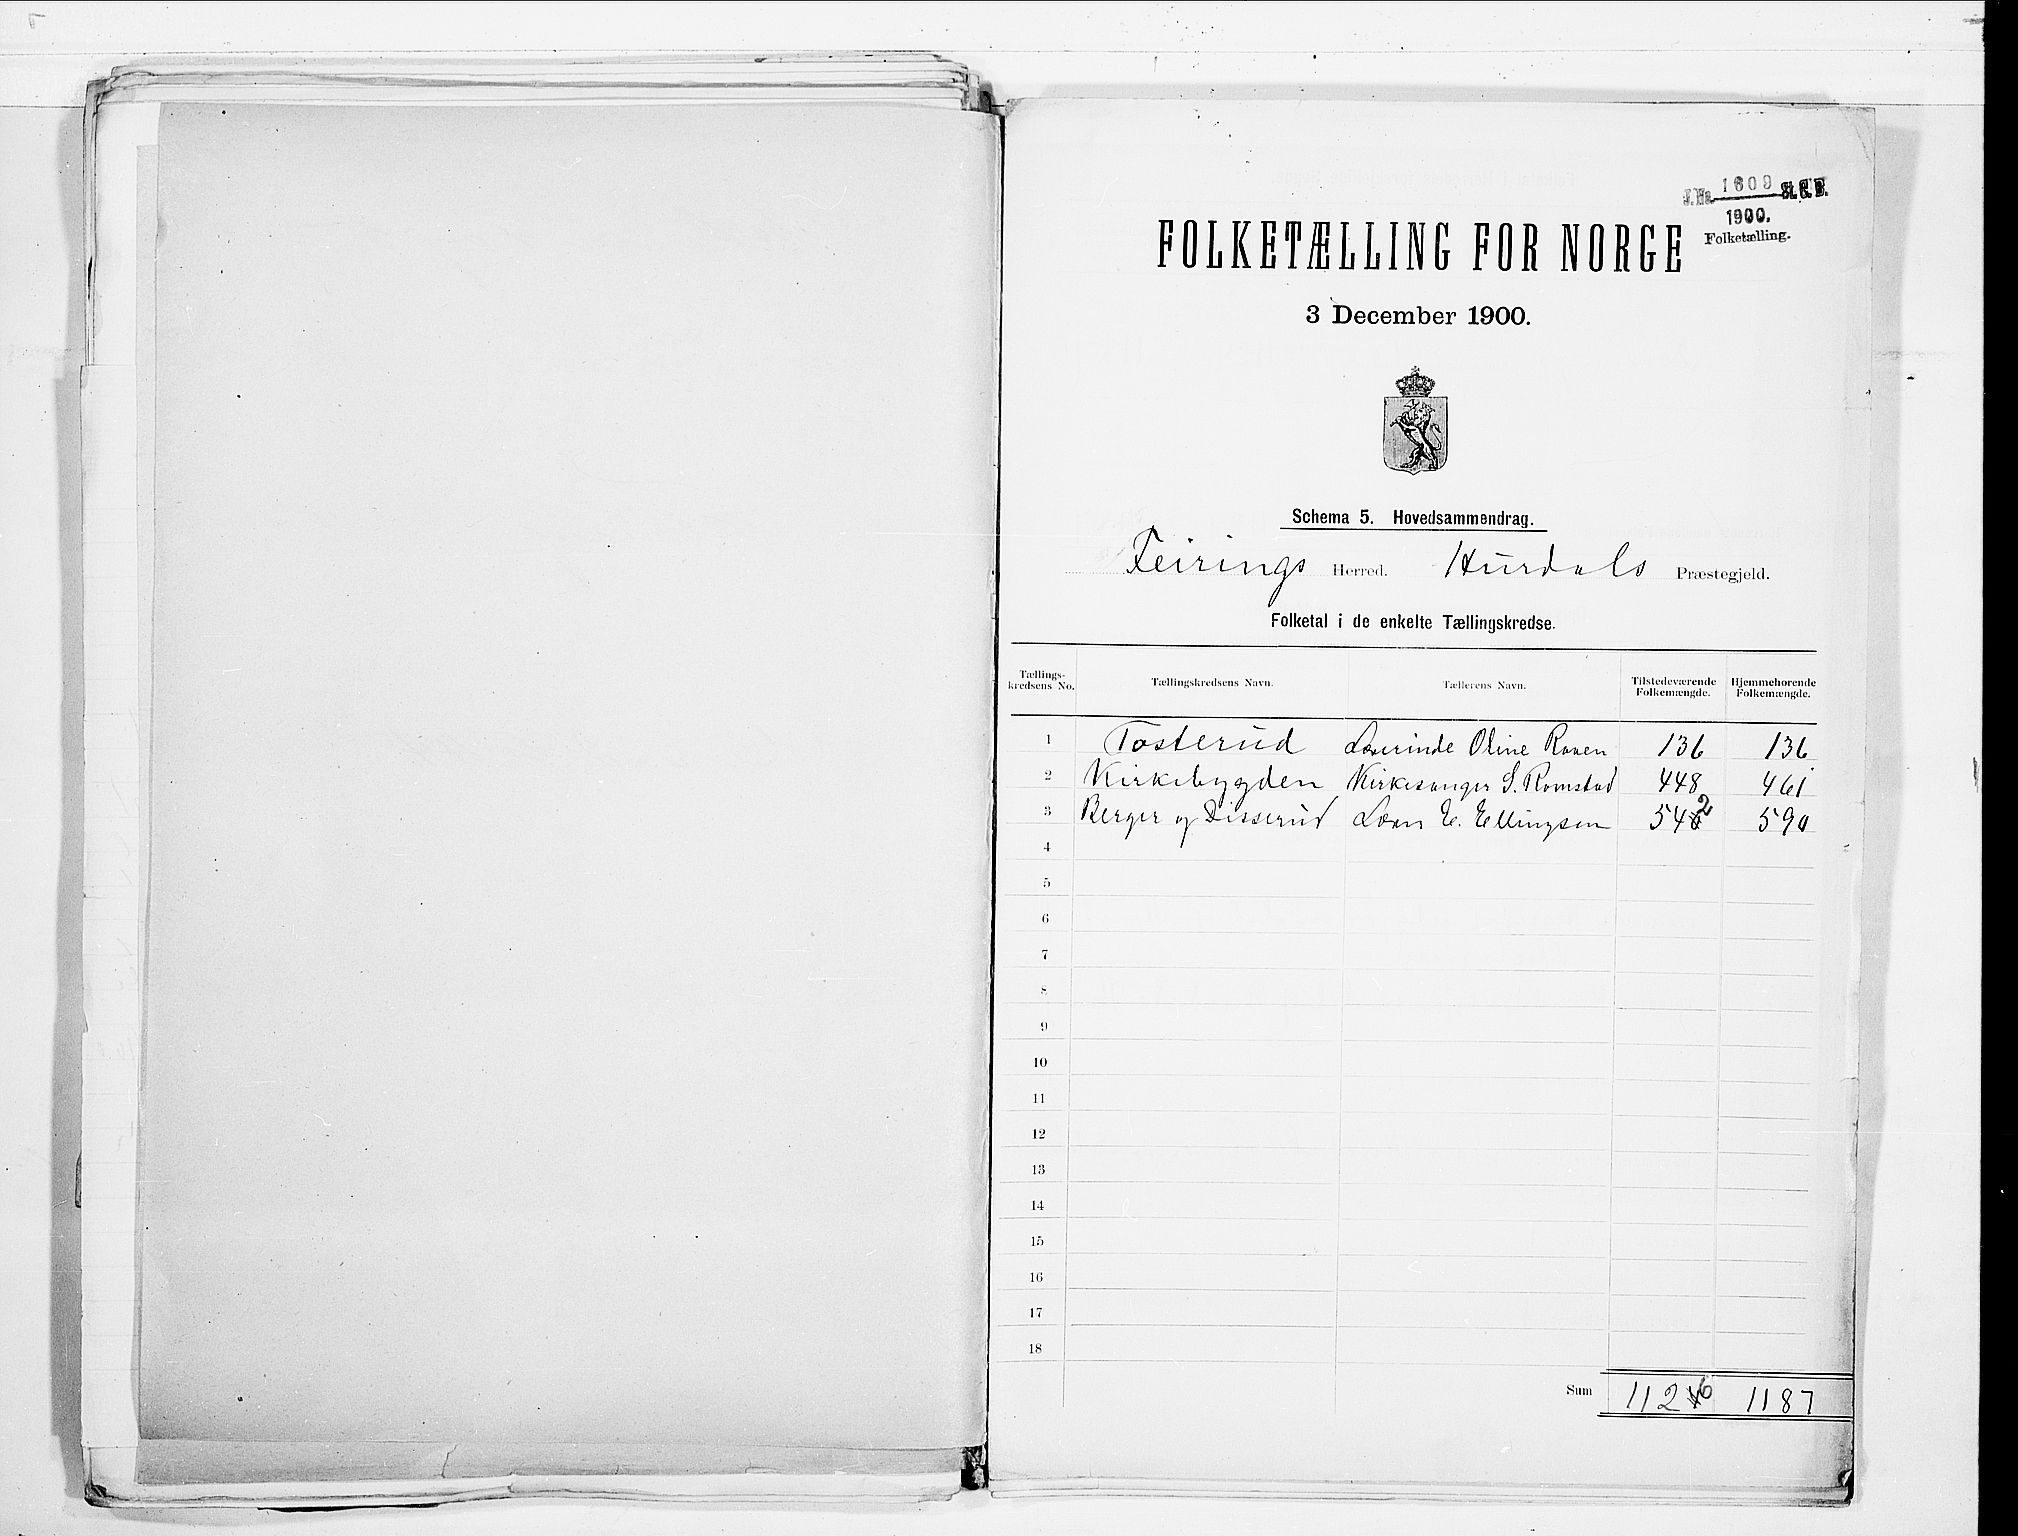 J. No. 1609 St. C. B.
1900.
Folketælling.
FOLKETÆLLING FOR NORGE
3 December 1900.
Schema 5. Hovedsammendrag.
Feirings Herred. Hurdals Præstegjeld.
Folketal i de enkelte Tællingskredse.
Tællings-kredsens No. Tællingskredsens Navn. Tællerens Navn. Tilstedeværende Folkemængde. Hjemmehørende Folkemængde.
1 Tosterud Laurinde Oline Raaen 136 136
2 Kirkebygden Kirkesanger S. Romstad 448 461
3 Berger og Disserud E. Ellingsen 542 590
4
5
6
7
8
9
10
11
12
13
14
15
16
17
18
Sum 1126 1187